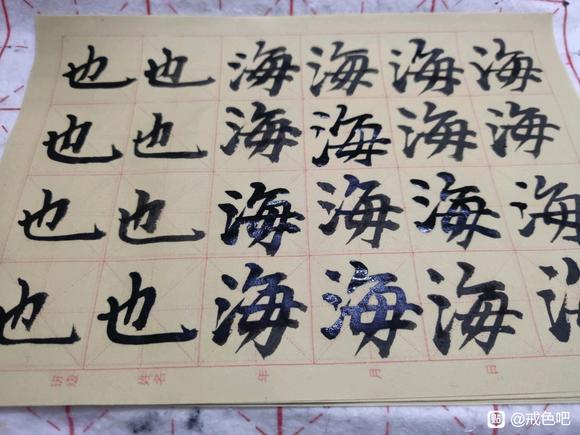 也也海海海海
也也海海海海
也也海海海海
也也海海海海
班级 姓名 年 月 日
贴 @戒色吧